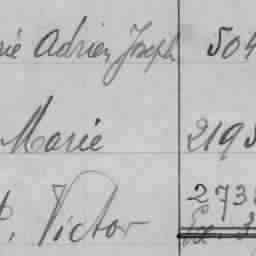 rie Adrien Joseph 504
Marie 2195
P. Victor 273